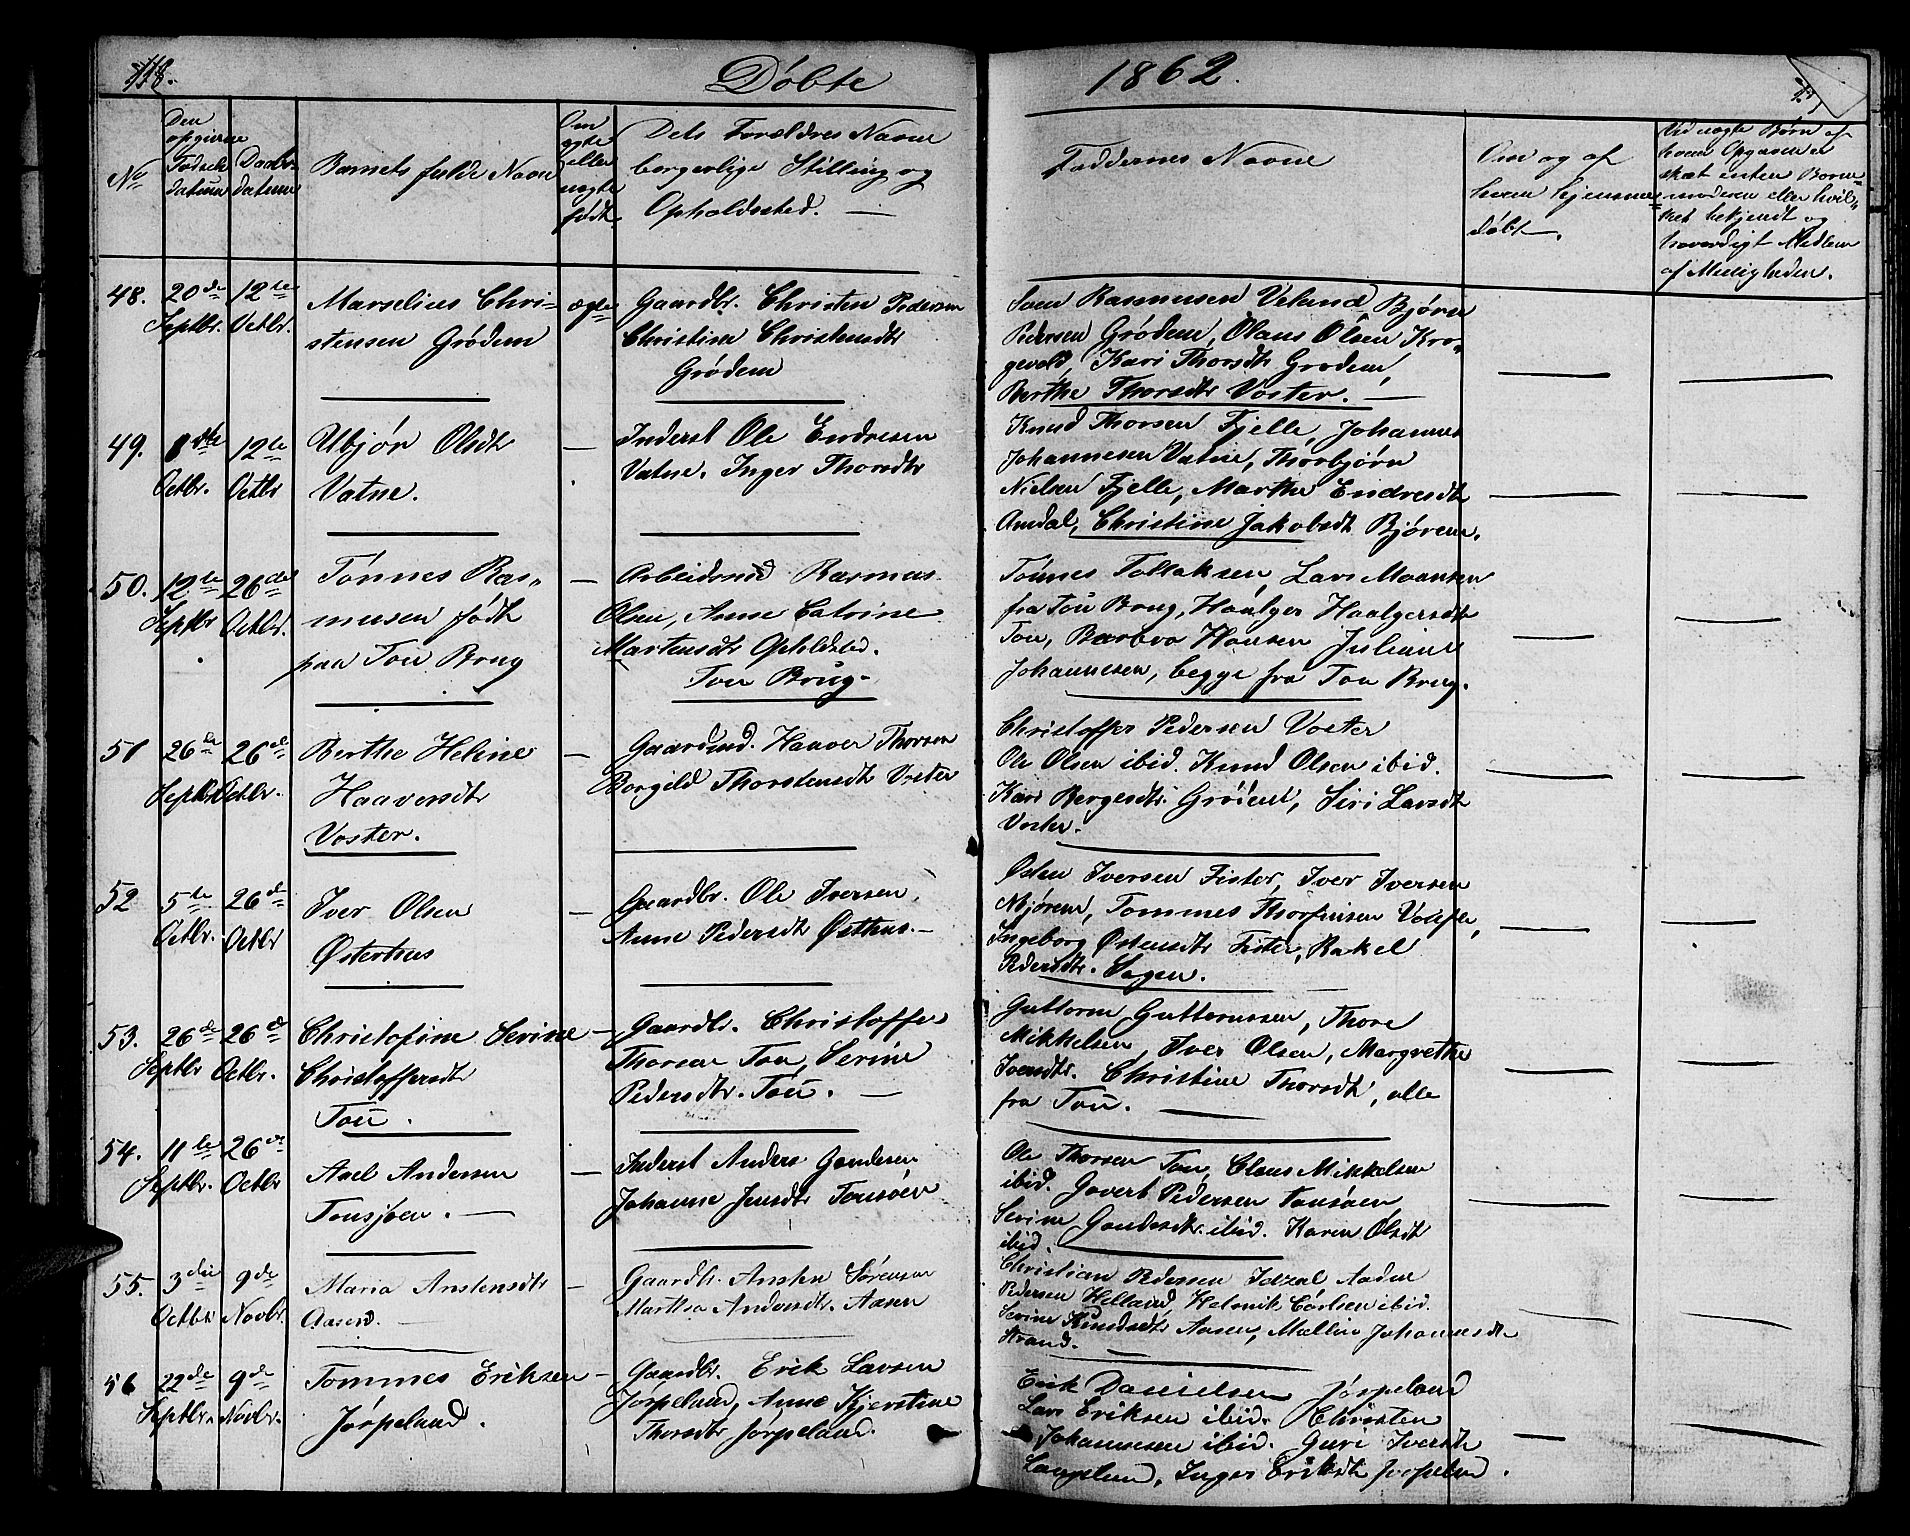 118.
Døbte
1862.
No
Den
opgivne
Fødsels
datum
Daabs
datum
Barnets fulde Navn
Om
ægte
eller
uægte
født
Dets Forældres Navne
borgerlige Stilling og
Opholdssted. —
Faddernes Navne
Om og af
hvem hjemme
døbt.
Ved uægte Børn af
hvem Opgaven er
skæt enten Barne
moderen eller hvil
ket bekjendt og
haverdigt Medlem
af Menigheden.
48.
20de
Septbr.
12te
Octbr.
Marselius Chri-
stensen Grødem
ægte
Gaardbr. Christen Pedersen
Christine Christensdtr
Grødem
Sven Rasmusen Veland, Bjørn
Pedersen Grødem, Olaus Olsen Kro-
gevold, Kari Thorsdtr Grødem,
Berthe Thorsdtr Voster. —
49.
8de
Octbr.
12te
Octbr
Abjør Olsdtr
Vatne.
—
Inderst Ole Endresen
Vatne. Inger Thorsdtr
Knud Thorsen Fjelle, Johannes
Johannesen Vatne, Thorbjørn
Nielsen Fjelle, Marthe Endresdtr
Amdal, Christine Jakobsdt Bjørem.
50.
12te
Septbr
26de
Octbr.
Tönnes Ras-
musen født
paa Tou Brug
—
Arbeidsmd Rasmus
Olsen, Anne Catrine
Martensdtr Opholdsted.
Tou Brug-
Tönnes Tollaksen, Lars Moansen
fra Tou Brug, Haalger Haalgersdtr
Tou, Barbro Hansen Juliane
Johannesen, begge fra Tou Brug.
51
26de
Septbr
26de
Octbr.
Berthe Heline
Haaversdtr
Voster.
—
Gaardmd. Haaver Thorsen
Borgild Thorstensdtr Voster
Christoffer Pedersen Voster
Ole Olsen ibid. Knud Olsen ibid.
Kari Bergesdtr. Grödem, Siri Larsdtr
Voster.
52
5te
Octbr.
26de
Octbr
Iver Olsen
Østerhus
—
Gaardbr. Ole Iversen,
Anne Pedersdtr Østhus.—
Østen Iversen Fister, Iver Iversen
Mjørem, Tommes Thorfinsen
Ingeborg Østensdtr Fister, Rakel
Pedersdtr. Sagen.
53.
26de
Septbr
26de
Octbr.
Christofine Serine
Christoffersdtr
Tou.
—
Gaardbr. Christoffer
Thorsen Tou, Serine
Pedersdtr. Tou. —
Guttorm Guttormsen, Thore
Mikkelsen, Iver Olsen, Margrethe
Iversdtr. Christine Thorsdt, alle
fra Tou.
54.
11te
Septbr.
26de
Octbr
Axel Andersen
Tousjøen. —
—
Inderst Anders Gundersen
Johanne Jensdtr Tousøen
Ole Thorsen Tou, Claus Mikkelsen
ibid. Govert Pedersen Tousøen
Serine Gundersdtr. ibid. Karen Olsdtr
ibid.
55.
3die
Octbr
9de
Novbr.
Maria Anstensdtr
Aasen. —
—
Gaardbr. Ansten Sørensen
Marthea Andersdtr. Aasen
Christian Pedersen Idzal Aadne
Pedersen Helland, Helmik Carlsen ibid.
Serine Knudsdtr Aasen, Malline Johannesdtr
Strand.
56
22de
Septbr.
9de
Novbr.
Tommes Eriksen
Jørpeland.
—
Gaardbr. Erik Larsen
Jørpeland, Anne Kjerstine
Thorsdtr Jørpeland.
Erik Danielsen Jørpeland
Lars Eriksen ibid. Christen
Johannesen ibid. Guri Iversdtr
Inger Eriksdtr Jørpeland.